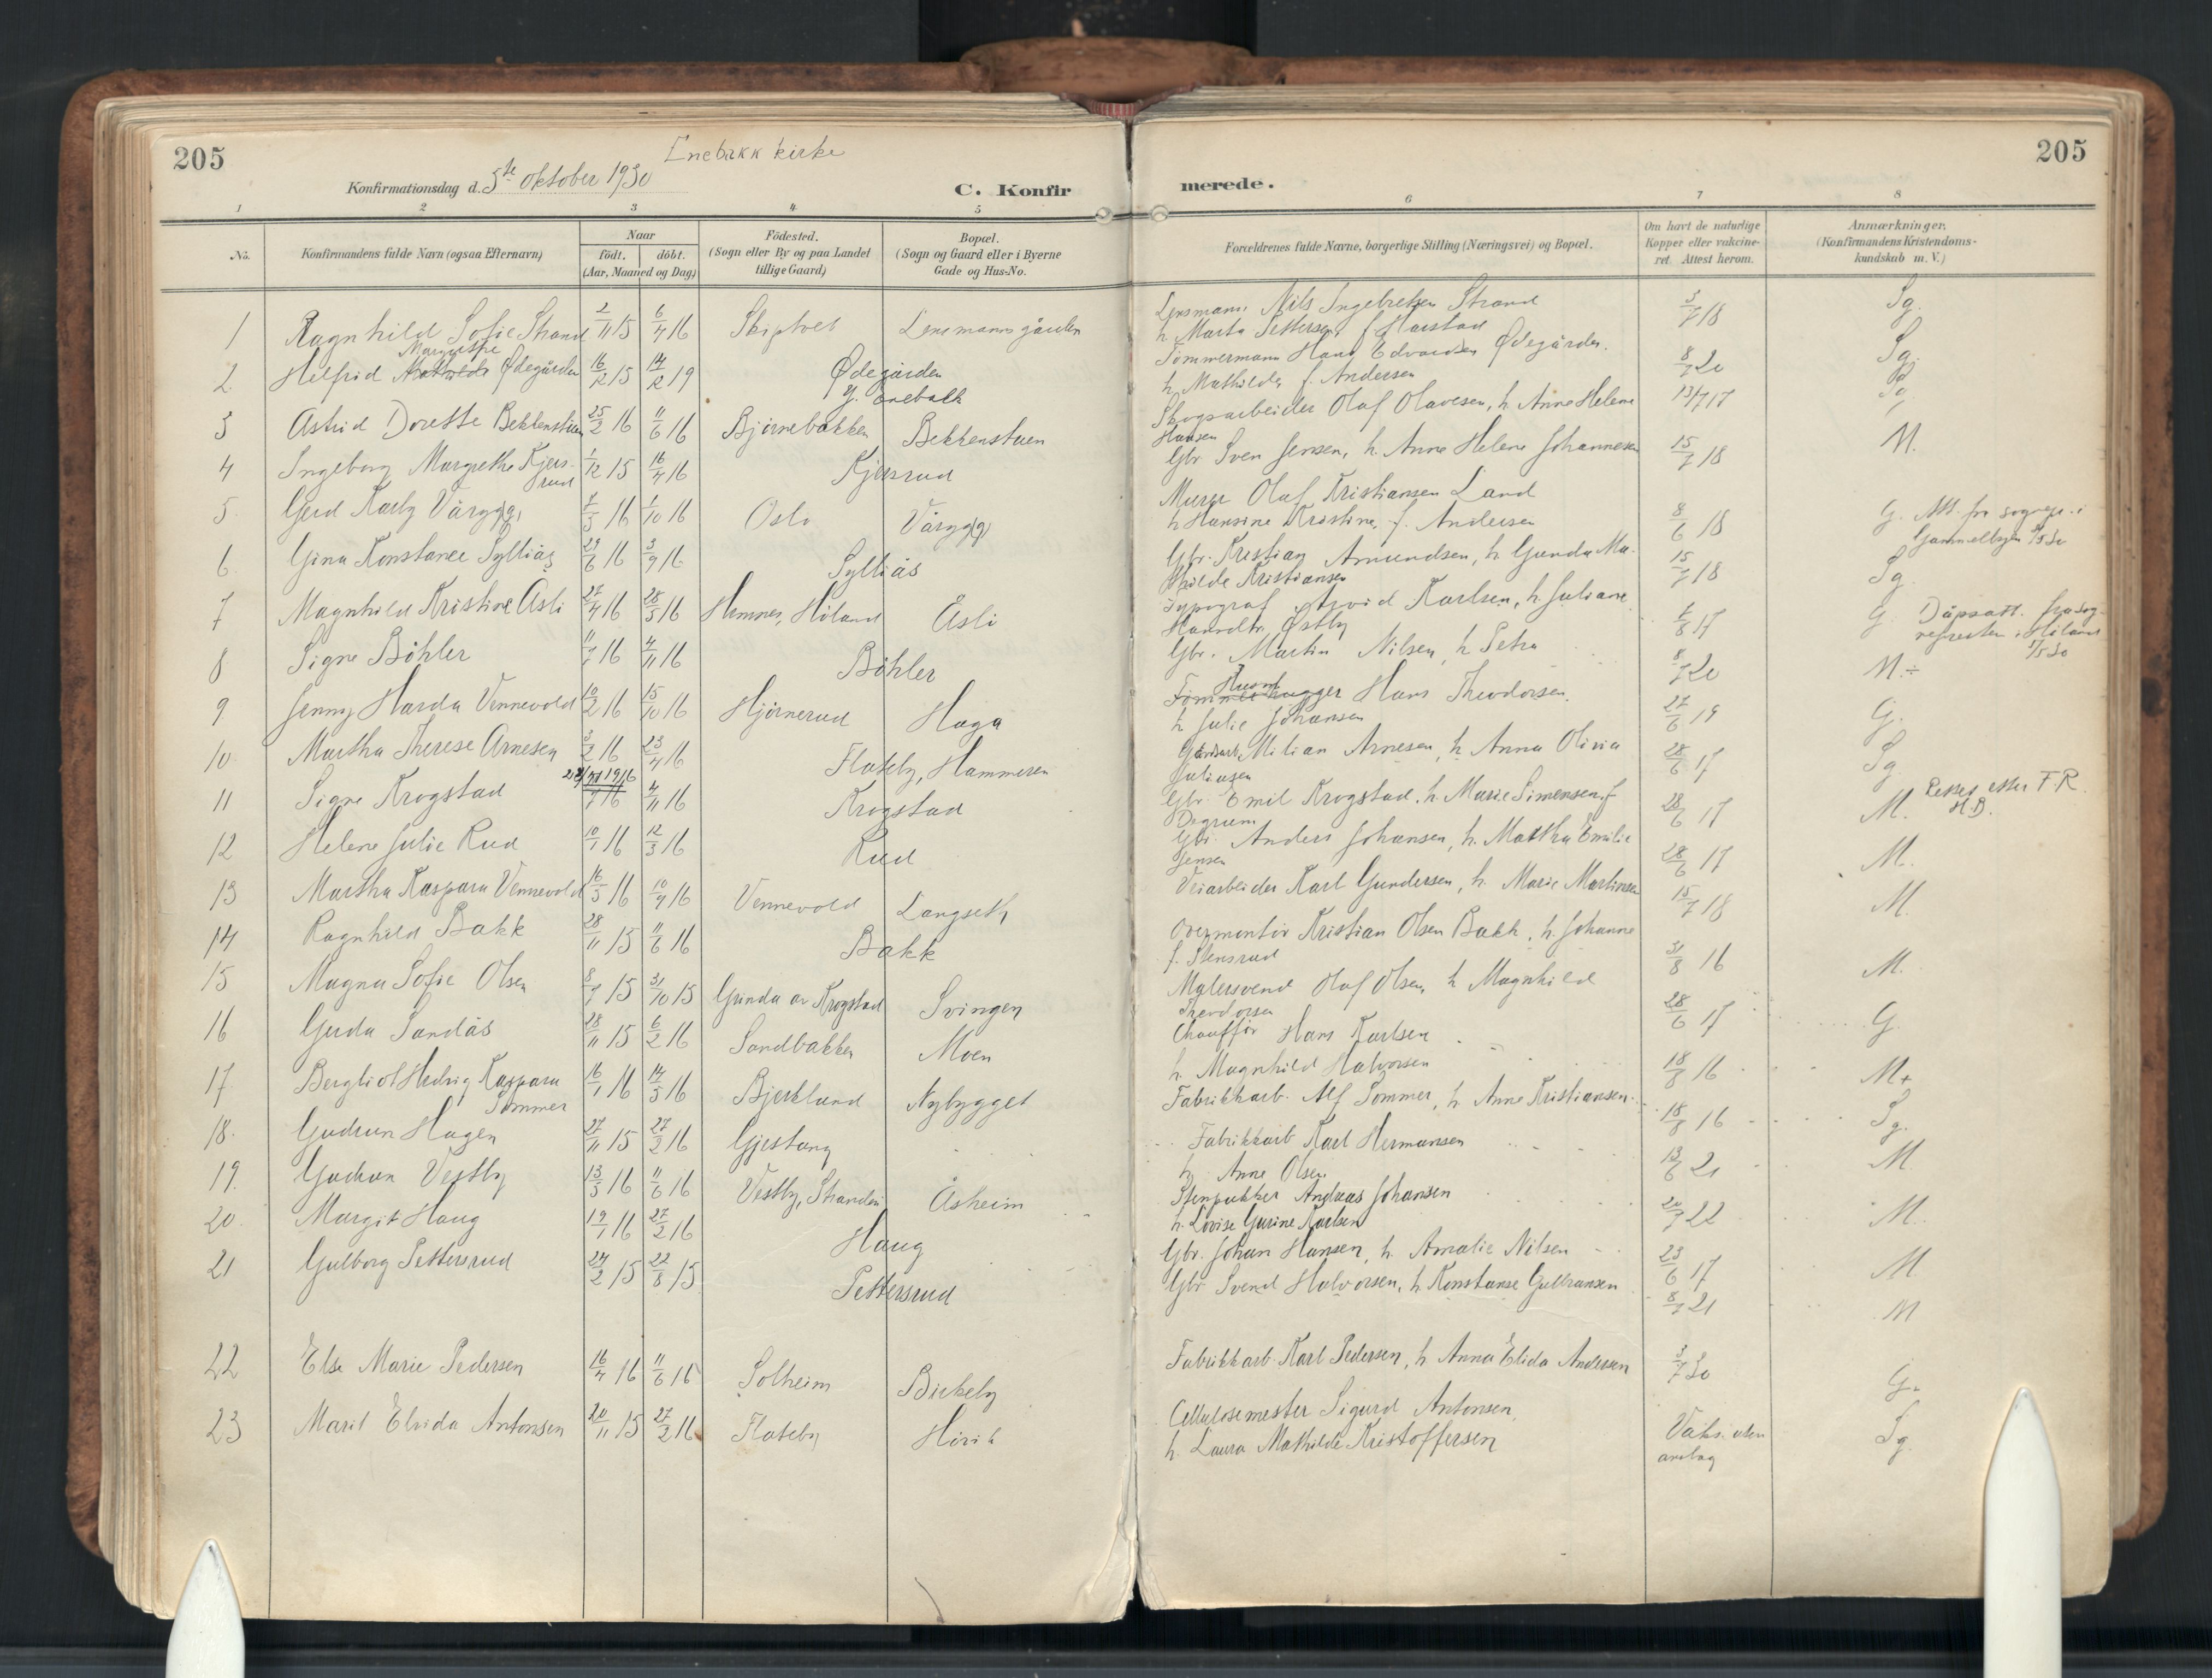 205
Enebakk kirke
205
Konfirmationsdag d. 5te oktober 1930
C. Konfirmerede.
1 2 3 4 5 6 7 8
No.
Konfirmandens fulde Navn (ogsaa Efternavn)
Naar
født. døbt.
(Aar, Maaned og Dag)
Fødested.
(Sogn eller By og paa Landet
tillige Gaard)
Bopæl.
(Sogn og Gaard eller i Byerne
Gade og Hus-No.
Forældrenes fulde Navne, borgerlige Stilling (Næringsvei) og Bopæl.
Om havt de naturlige
Kopper eller vakcine-
ret. Attest herom.
Anmærkninger.
(Konfirmandens Kristendoms-
kundskab m. V.)
1 Ragnhild Sofie Strand 2/11 15 6/4 16 Skiptvet Lensmannsgården
Lensmann Nils Ingebretsen Strand
h. Marta Pettersen f. Harstad
3/7 18 Sg.
2 Helfrid Margrethe Ødegården 16/12 15 14/12 19 Ødegården
Y. Enebakk
Tømmermann Hans Edvardsen Ødegården.
h. Mathilde f. Andersen
8/7 20 Sg.
3 Astrid Dorette Bekkenstuen 25/2 16 11/6 16 Bjørnebakken Bekkenstuen
Skogsarbeider Olaf Olavesen, h. Anne Helene
Hansen
13/7 17 Sg
4 Ingeborg Margrethe Kjers-
rud 1/12 15 16/4 16 Kjersrud
Gbr Sven Jensen, h. Anne Helene Johannesen
15/7 18 M.
5 Gerd Karly Vårgyg, 1/10 16 Oslo
Murer Olaf Kristiansen Land
h Hansine Kristine, f. Andersen
8/6 18 G. Att. fra sognepr. i
Gammelbyen
6 Gina Konstanse Sylliås 29/6 16 3/9 16 Sylliås
Gbr. Kristian Amundsen, h Gunda Ma-
thilde Kristiansen
15/7 18 Sg.
7 Magnhild Kristine Åsli 27/4 16 28/5 16 Hemnes, Høland Åsli
Typograf Arvid Karlsen, h. Juliane
Østby
G. Dåpsatt. fra sog-
nepresten i Høland
8 Signe Böhler 11/7 16 4/11 16 Böhler
Gbr. Martin Nilsen, h Petra
8/7 20 M.÷
9 Jenny Harda Vennevold 10/2 16 15/10 16 Hjørnerud Haga
Tømmerhugger Hans Theodorsen.
h Julie Johansen
27/6 19 G.
10 Martha Therese Arnesen 3/2 16 23/4 16 Flateby, Hammeren
Milian Arnesen, h. Anna Olivia
Juliusen
28/6 17 Sg
11 Signe Krogstad 4/11 16 Krogstad
Gbr. Emil Krogstad. h. Marie Simensen f
Degrum
28/6 17 M. Leses etter F.R.
M.B.
12 Helene Julie Rud 10/1 16 12/3 16 Rud
Gbr. Anders Johansen, h. Martha Emilie
Jensen
28/6 17 M.
13 Martha Kaspara Vennevold 16/5 16 10/9 16 Vennevold Langseth
Veiarbeider Karl Gundersen, h. Marie Martinsen
15/7 18 M.
14 Ragnhild Bakk 28/11 15 11/6 16 Bakk
Overmontør Kristian Olsen Bakk, h. Johanne
f. Stensrud
31/8 16 M.
15 Magna Sofie Olsen 8/9 15 31/10 15 Grinda av Krogstad Svingen
Malersvend Olaf Olsen, h Magnhild
Theodorsen
28/6 17 G
16 Gerda Sandås 28/11 15 6/2 16 Sandbakken Moen
Chauffør Hans Karlsen
h. Magnhild Halvorsen
18/8 16 M+
17 Bergliot Hedvig Kaspara
Sommer 16/1 16 14/5 16 Bjerklund Nybygget
Fabrikkarb. Alf Sommer, h Anne Kristiansen
18/8 16 Sg.
18. Gudrun Hagen 27/11 15 27/2 16 Gjestang
Fabrikkarb Karl Hermansen
h. Anne Olsen
13/6 21 M
19. Gudrun Vestby 13/5 16 11/6 16 Vestby, Stranden Åsheim
Stenpukker Andreas Johansen
h. Lovise Gurine Karlsen
22 M.
20. Margit Haug 19/1 16 27/2 16 Haug
Gbr. Johan Hansen, h. Amalie Nilsen
23/6 17 M
21 Gulborg Pettersrud 24/2 15 22/8 15 Pettersrud
Gbr Svend Halvorsen, h Konstanse Gulbransen
8/7 21 M
22 Else Marie Pedersen 16/4 16 11/6 16 Solheim Birkeby
Fabrikkarb. Karl Pedersen, h Anna Elida Andersen
3/7 30 G.
23 Marit Elvida Antonsen 20/11 15 27/2 16 Flateby
Cellulosemester Sigurd Antonsen,
h. Laura Mathilde Kristoffersen
Vaks. uten
anslag
Sg.